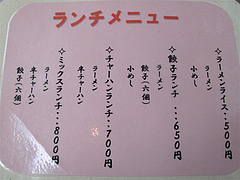 ランチメニュー
✧ラーメンライス・・・500円
ラーメン
小めし
✧餃子ランチ・・・650円
ラーメン
小めし
餃子(六個)
✧チャーハンランチ・・700円
ラーメン
半チャーハン
✧ミックスランチ・・・800円
ラーメン
半チャーハン
餃子(六個)